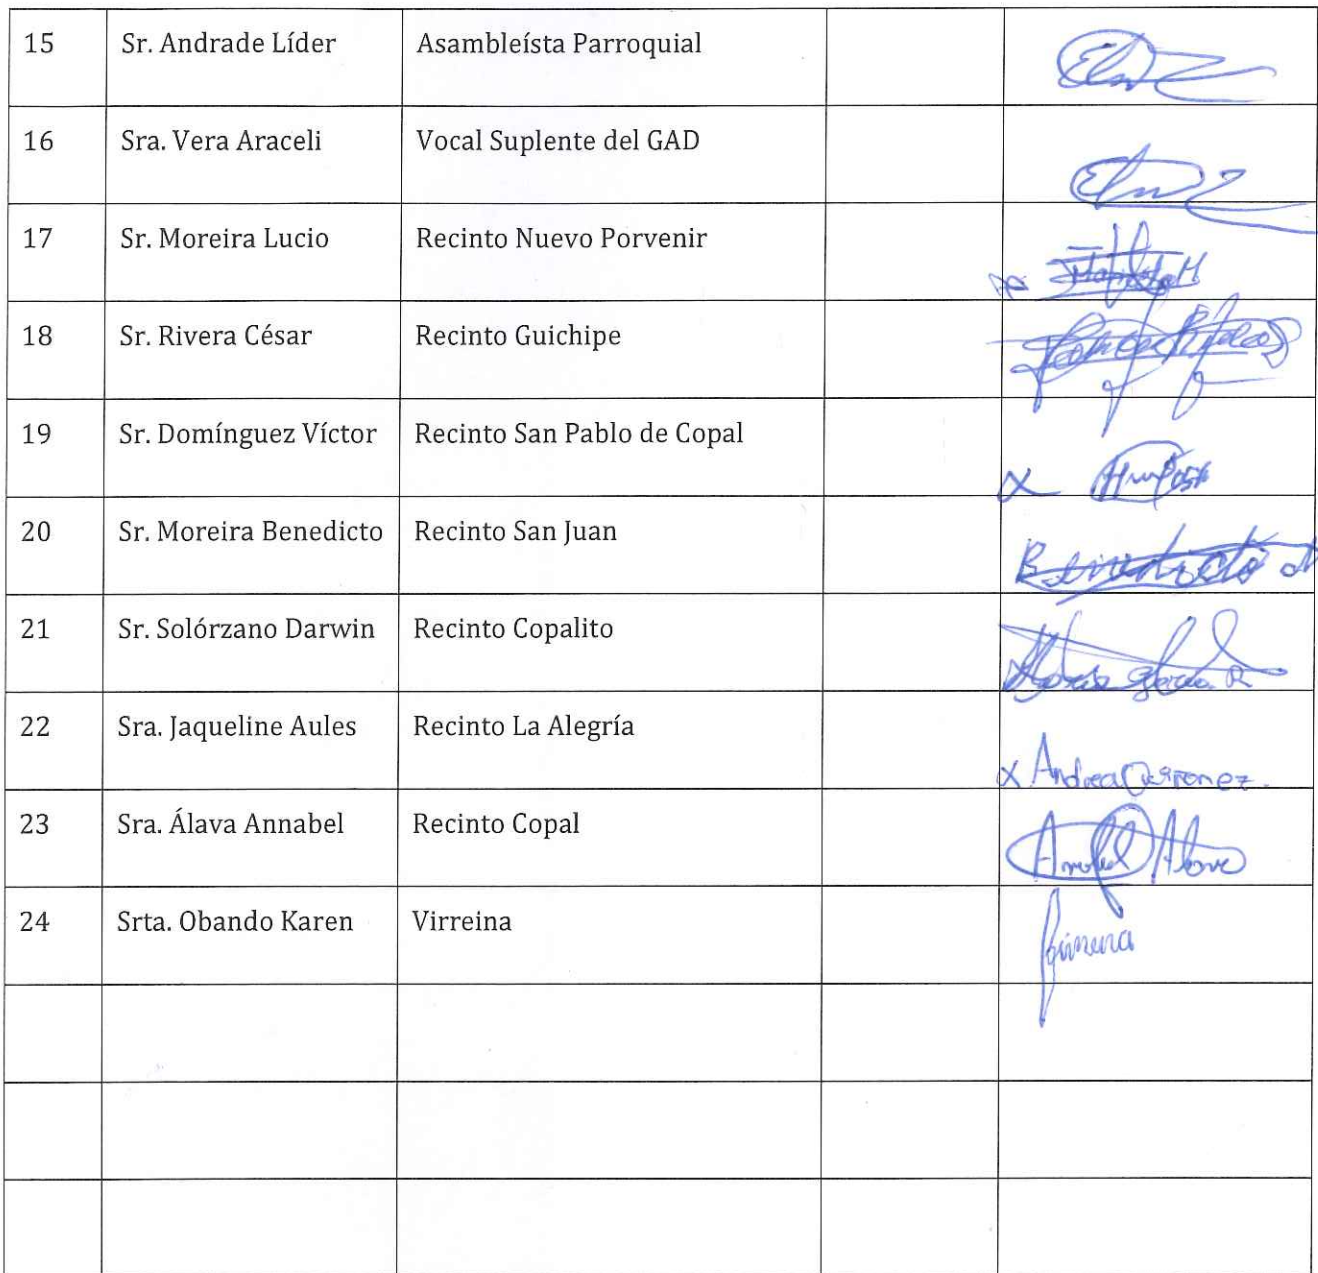 15 Sr. Andrade Líder Asambleísta Parroquial
16 Sra. Vera Araceli Vocal Suplente del GAD
17 Sr. Moreira Lucio Recinto Nuevo Porvenir
18 Sr. Rivera César Recinto Guichipe
19 Sr. Domínguez Víctor Recinto San Pablo de Copal
X
20 Sr. Moreira Benedicto Recinto San Juan
Benedicto
21 Sr. Solórzano Darwin Recinto Copalito
22 Sra. Jaqueline Aules Recinto La Alegría
X Andrea
23 Sra. Álava Annabel Recinto Copal
24 Srta. Obando Karen Virreina